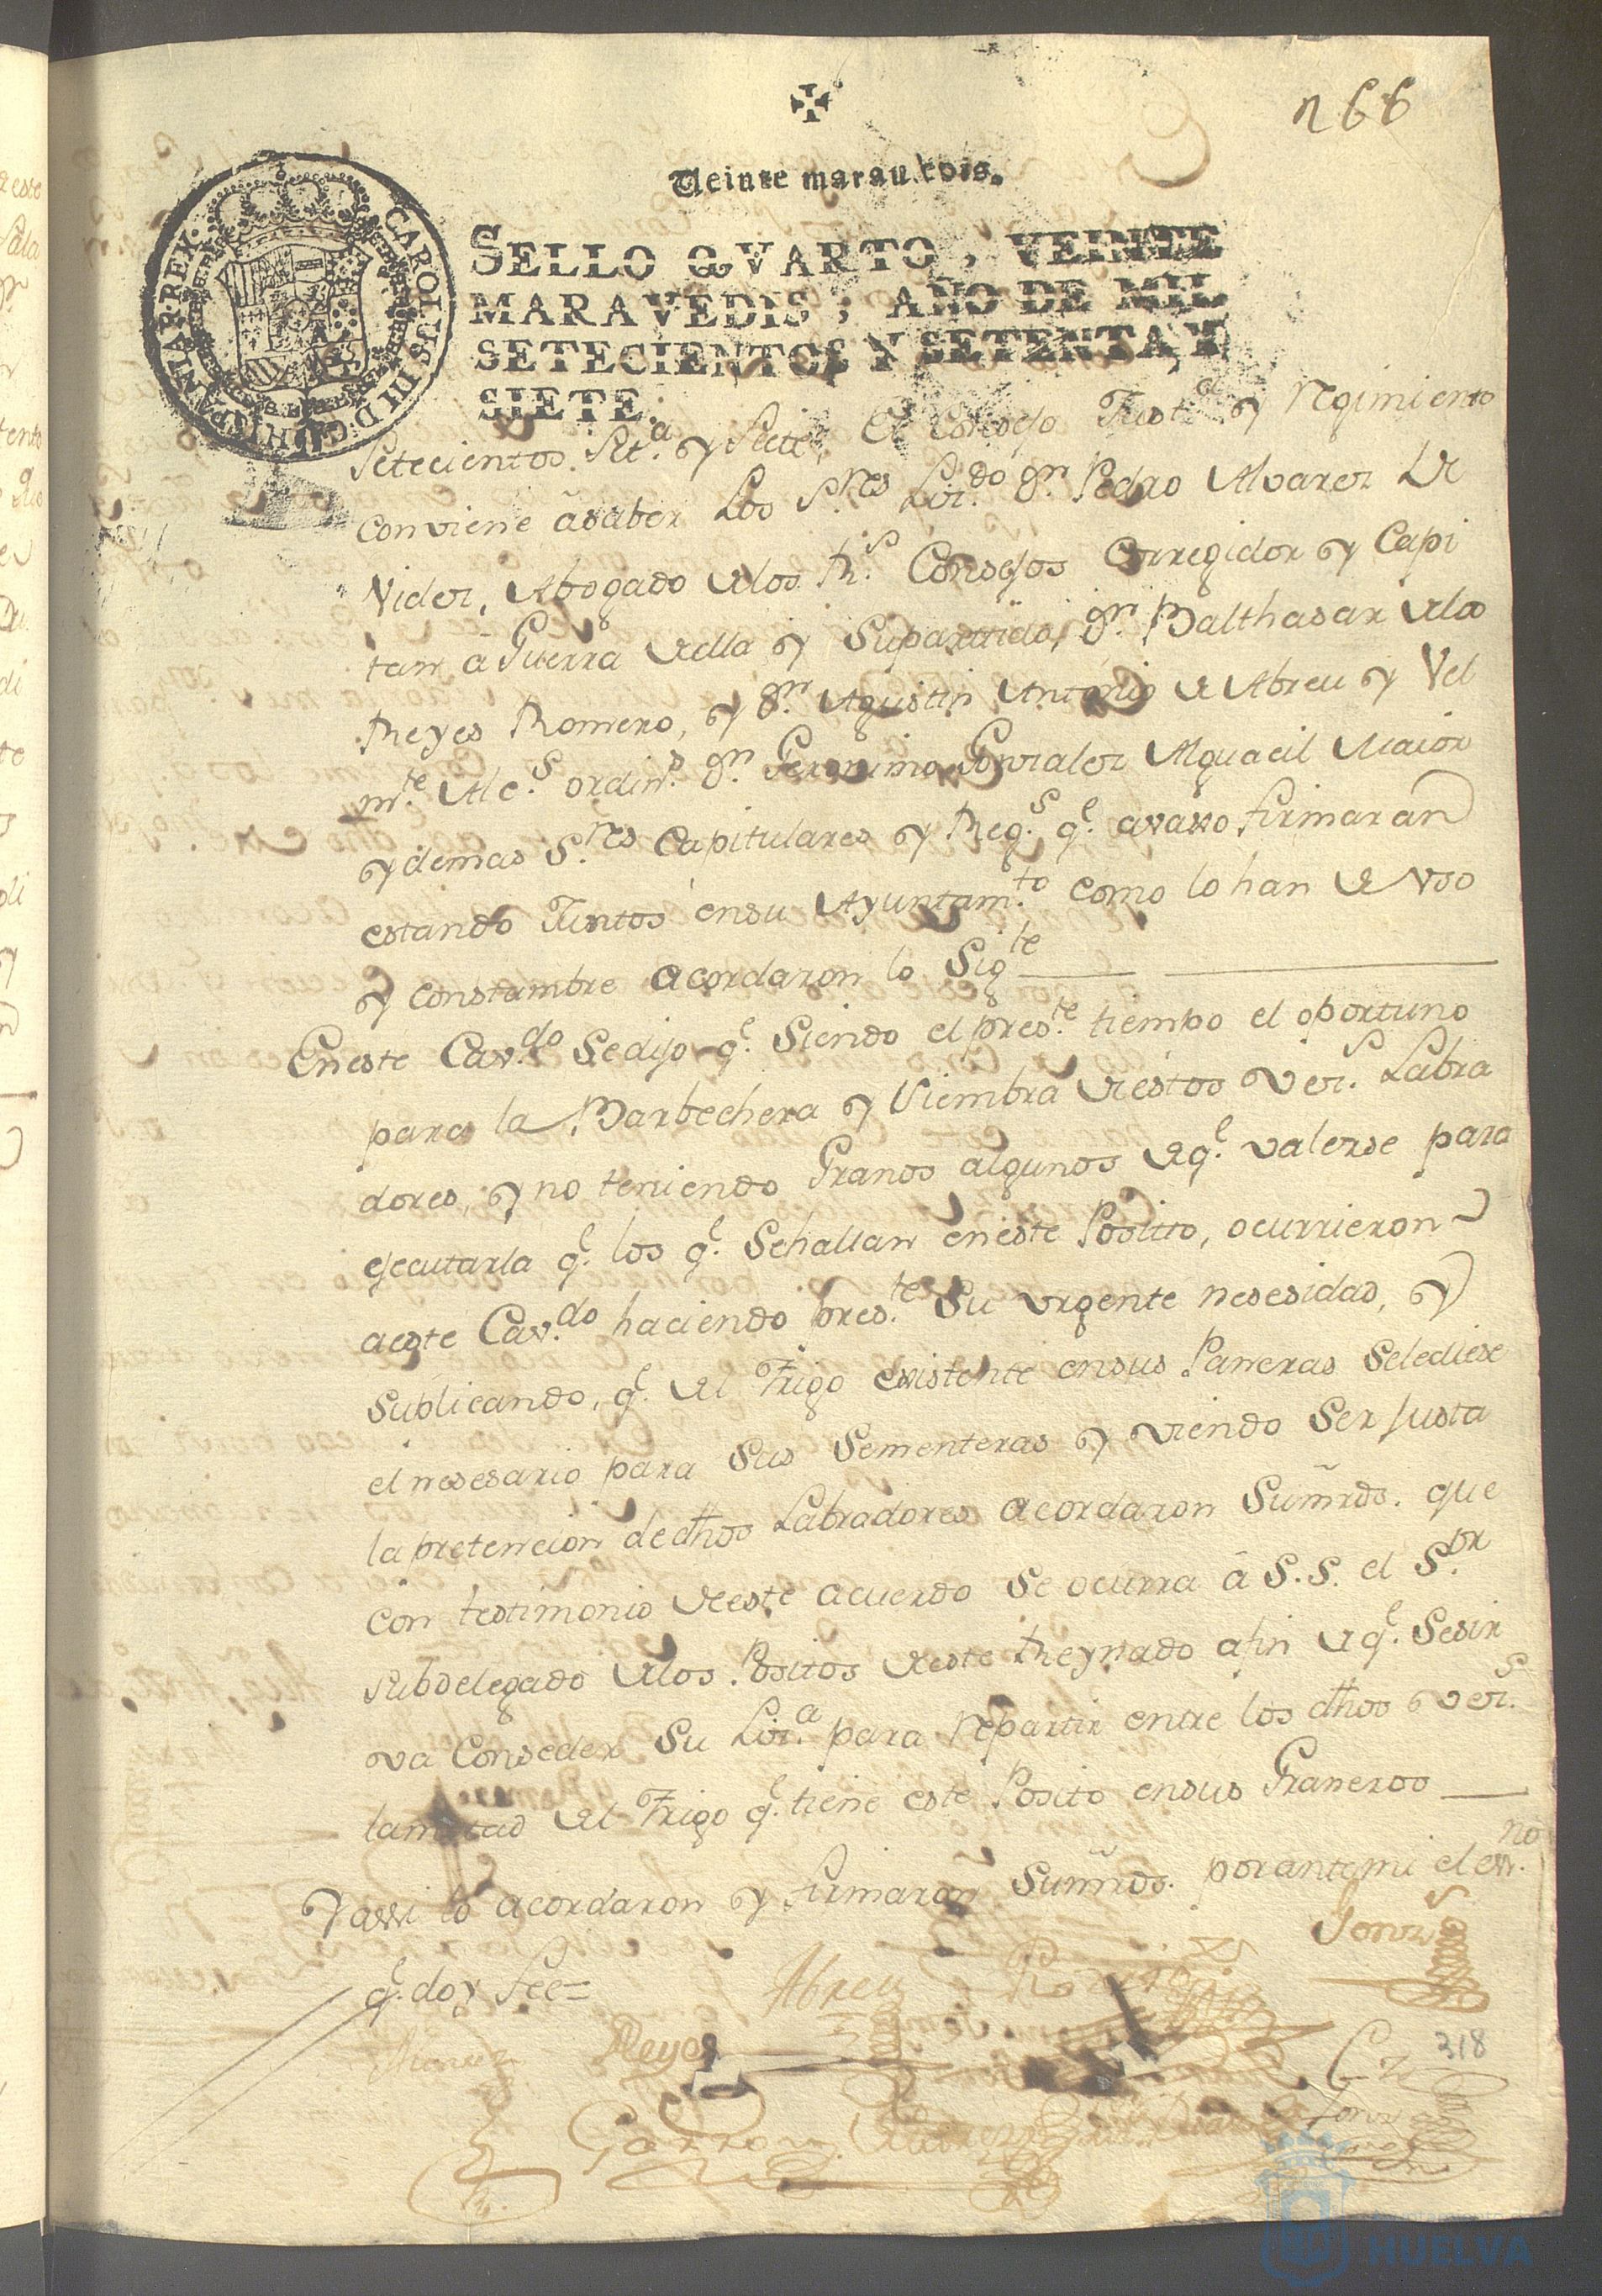 266
Veinte marauedis.
SELLO QVARTO, VEINTE
MARAVEDIS, AÑO DE MIL
SETECIENTOS Y SETENTA Y
SIETE.
CAROLUS III D G HISPANIAR REX
Setecientos Set.ª y Siete, El Consejo Just.ª y Regimiento
conviene âsaber Los S.res Liz.do Dn. Pedro Alvarez de
Videz, Abogado de los R.s Consejos Corregidor y Capi
tan â Guerra della y Supartido, Dn. Balthasar de los
Reyes Romero, y Dn. Agustin Antonio de Abreu y Vel
m.te Alc.s ordin.s Dn. Geronimo Gonzalez Alguacil Maior
y demas S.res Capitulares y Reg.s q.e avaxo firmaran
estando Juntos ensu Ayuntam.to como lo han de vso
y constumbre acordaron lo Sig.te
Eneste Cav.do Sedijo q.e Siendo el pres.te tiempo el oportuno
para la Barbechera y Siembra destos vez.s Labra
dores, y no teniendo Granos algunos deq.e valerse para
ejecutarla q.e los q.e Sehallan eneste Posito, ocurrieron
aeste Cav.do haciendo pres.te Su vrgente nesesidad, y
Suplicando, q.e del Trigo existente ensus Paneras Selediese
el nesesario para Sus Sementeras y viendo Ser justa
la pretencion de dhos Labradores acordaron Sus mrds. que
con testimonio deeste acuerdo Se ocurra â S.S. el S.or
Subdelegado delos Positos deeste Reynado afin deq.e Sesir
va Conseder Su Liz.ª para Repartir entre los dhos vez.s
la mitad del Trigo q.e tiene este Posito ensus Graneros
Y assi lo acordaron y firmaron Sus mrds. por ante mi el ess.no
q.e doy fee=
Gonz
Abreu
Romero
Alvarez
Reyes
318
Garzon
HUELVA